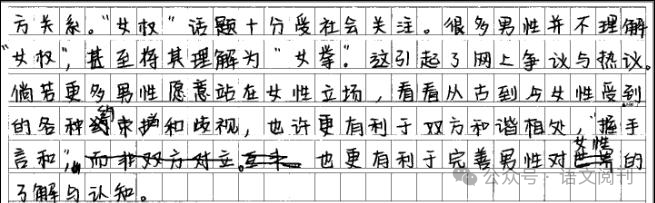 方关系。“女权”话题十分受社会关注。很多男性并不理解
“女权”，甚至将其理解为“女拳”。这引起了网上争议与热议。
倘若更多男性愿意站在女性立场，看看从古到今女性受到
的各种约束和歧视，也许更有利于双方和谐相处，“握手
言和”，而非双方对立。也更有利于完善男性对女性的
了解与认知。
公众号·语文阅刊